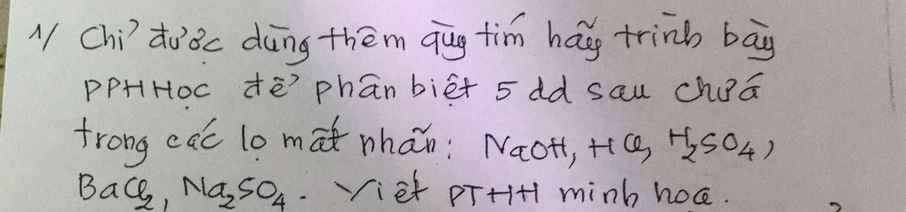 1/ Chỉ được dùng thêm qùy tím hãy trình bày
PPHHọc để phân biệt 5 dd sau chứá
trong các lọ mất nhãn: NaOH, HCl, H₂SO₄,
BaCl₂, Na₂SO₄. Viết PTHH minh hoạ.